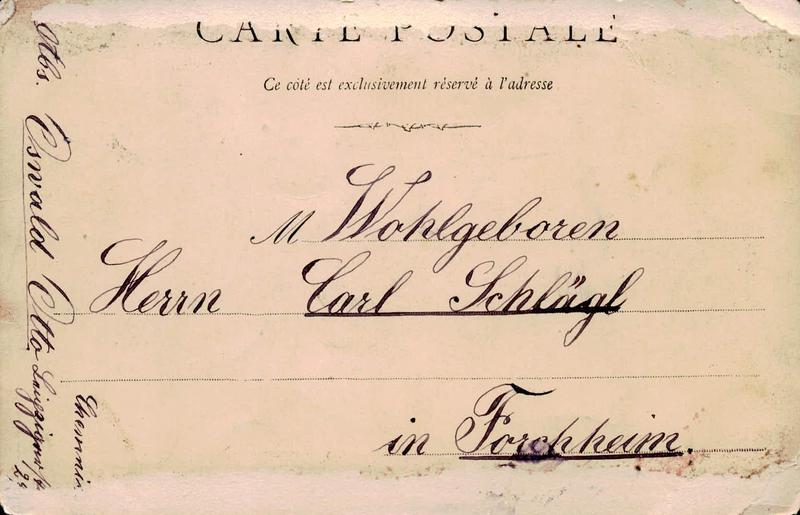 CARTE POSTALE
Ce côté est exclusivement réservé à l'adresse
M Wohlgeboren
Herrn Carl Schlägl
in Forchheim.
Abs. Oswald Otto
Chemnitz